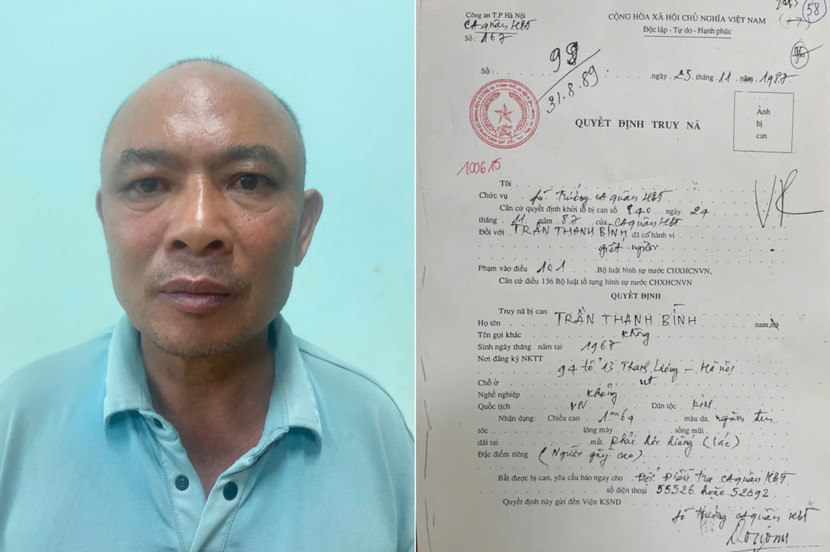 Công an T.P Hà Nội
CA quận HBT
Số : 167
CỘNG HÒA XÃ HỘI CHỦ NGHĨA VIỆT NAM
Độc lập - Tự do - Hạnh phúc
58
Số :
99
31.8.89
ngày 25 tháng 11 năm 1987
QUYẾT ĐỊNH TRUY NÃ
Ảnh
bị
can
100615
Tôi
Chức vụ trưởng CA quận HBT
Căn cứ quyết định khởi tố bị can số 940 ngày 24
tháng 11 năm 87 của CA quận HBT
Đối với TRẦN THANH BÌNH đã có hành vi
giết người
Phạm vào điều 101 Bộ luật hình sự nước CHXHCNVN,
Căn cứ điều 136 Bộ luật tố tụng hình sự CHXHCNVN
QUYẾT ĐỊNH
Truy nã bị can
Họ tên TRẦN THANH BÌNH nam, nữ
Tên gọi khác không
Sinh ngày tháng năm tại 1967
Nơi đăng ký NKTT
94 tổ 13 Thanh Lương - Hà Nội
Chỗ ở nt
Nghề nghiệp không
Quốc tịch VN Dân tộc kinh
Nhận dạng: Chiều cao 1m64 màu da ngăm đen
tóc lông mày sống mũi
dái tai mắt phải
Đặc điểm riêng (Người gầy cao)
Bắt được bị can, yêu cầu báo ngay cho Đội Điều tra CA quận HBT
số điện thoại 55526 hoặc 52692
Quyết định này gửi đến Viện KSND
trưởng CA quận HBT